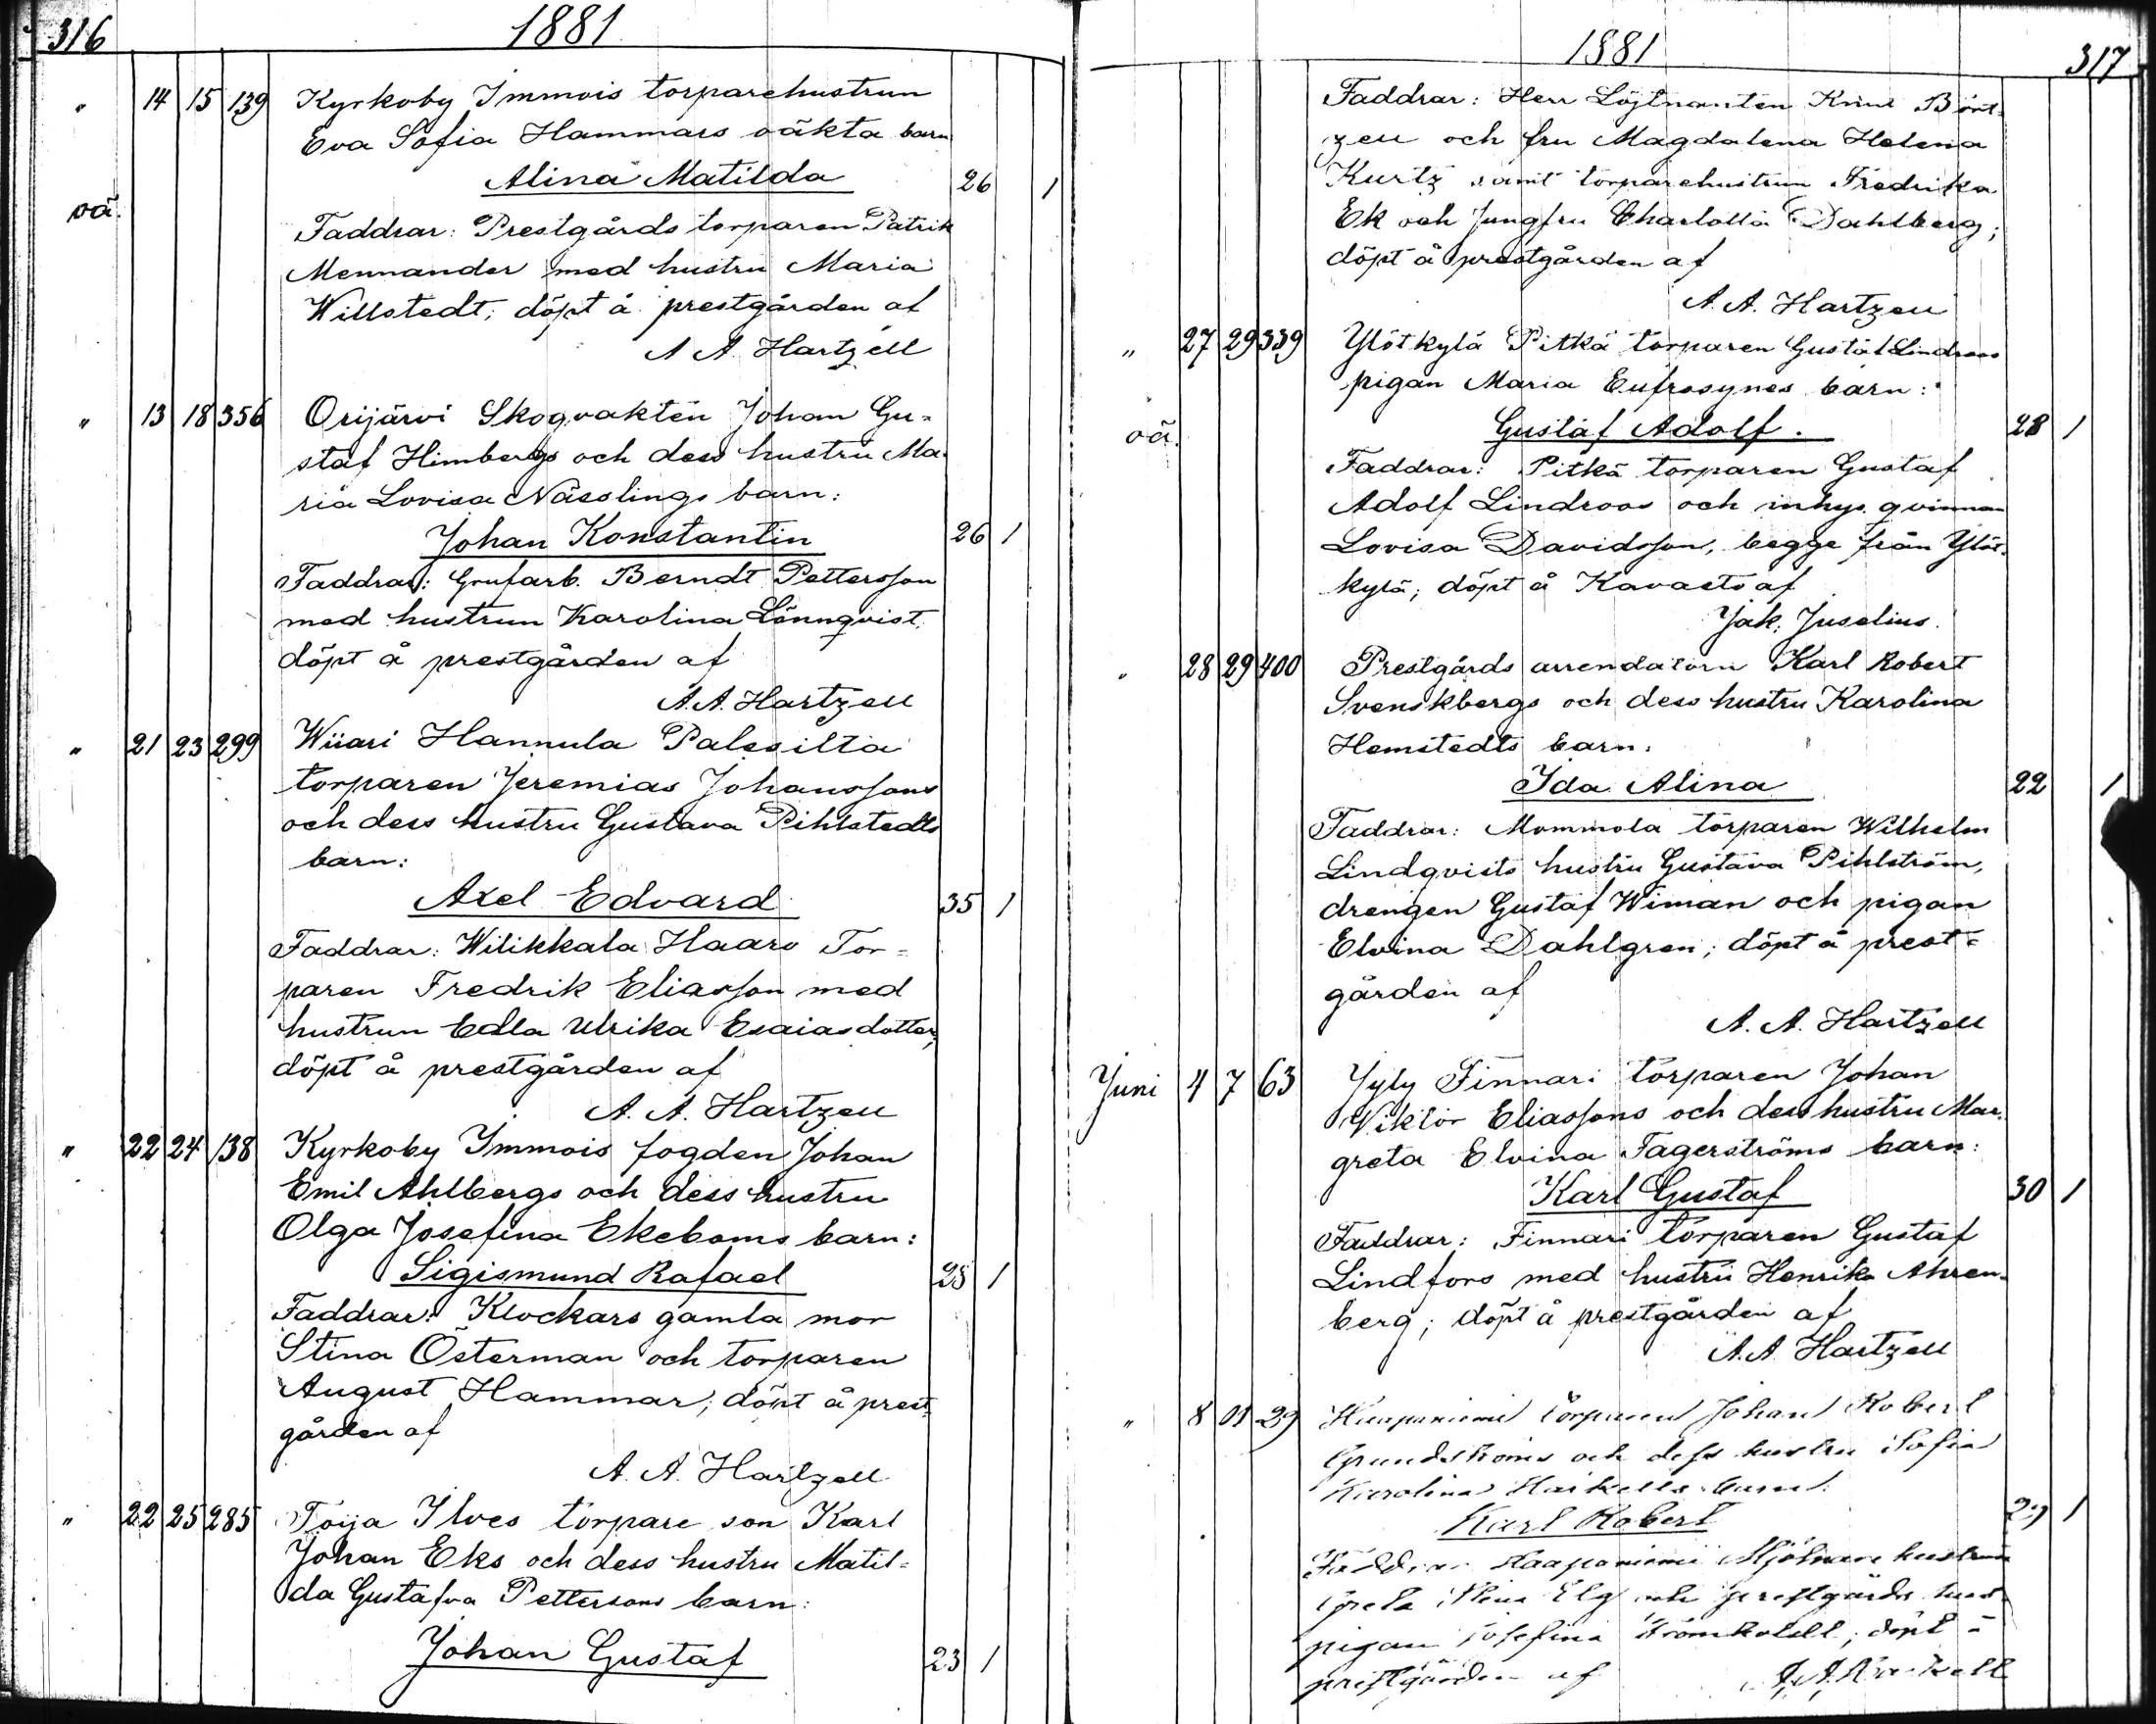 316
1881
" 14 15 139 Kyrkoby Immois torparehustrun
Eva Sofia Hammars oäkta barn
Alina Matilda 26 1
oä.
Faddrar: Prestgårds torparen Patrik
Mennander med hustru Maria
Willstedt; döpt å prestgården af
A A Hartzell
" 13 18 356 Orijärvi Skogvakten Johan Gu-
staf Himbergs och dess hustru Ma-
ria Lovisa Nässlings barn:
Johan Konstantin 26 1
Faddrar: Grufarb. Berndt Pettersson
med hustrun Karolina Lönnqvist,
döpt å prestgården af
A. A. Hartzell
" 21 23 299 Wiiari Hannula Palesilta
torparen Jeremias Johanssons
och dess hustru Gustava Pihlstedts
barn:
Axel Edvard 35 1
Faddrar: Wilikkala Haaro Tor=
paren Fredrik Eliasson med
hustrun Edla Ulrika Esaiasdotter,
döpt å prestgården af
A. A. Hartzell
" 22 24 138 Kyrkoby Immois fogden Johan
Emil Ahlbergs och dess hustru
Olga Josefina Ekeboms barn:
Sigismund Rafael 25 1
Faddrar: Klockars gamla mor
Stina Österman och torparen
August Hammar; döpt å prest-
gården af
A. A. Hartzell
" 22 25 285 Toija Ilves torpare son Karl
Johan Eks och dess hustru Matil=
da Gustafva Pettersons barn:
Johan Gustaf 23 1
1881
317
Faddrar: Herr Löjtnanten Knut Bört-
zell och fru Magdalena Helena
Kurtz samt torparehustrun Fredrika
Ek och Jungfru Charlotta Dahlberg;
döpt å prestgården af
A. A. Hartzell
" 27 29 339 Ylötkylä Pitkä torparen Gustaf Lindroos
pigan Maria Eufrosynes barn:
oä. Gustaf Adolf. 28 1
Faddrar: Pitkä torparen Gustaf
Adolf Lindroos och inhys. qvinnan
Lovisa Davidsson, begge från Ylöt-
kylä; döpt å Kavasto af
Jak. Juselius.
" 28 29 400 Prestgårds arrendatorn Karl Robert
Svenskbergs och dess hustru Karolina
Hemstedts barn:
Ida Alina 22 1
Faddrar: Mommola torparen Wilhelm
Lindqvists hustru Gustava Pihlström,
drengen Gustaf Wiman och pigan
Elvina Dahlgren; döpt å prest=
gården af
A. A. Hartzell
Juni 4 7 63 Jyly Finnari torparen Johan
Wiktor Eliassons och dess hustru Mar-
greta Elvina Fagerströms barn:
Karl Gustaf 30 1
Faddrar: Finnari torparen Gustaf
Lindfors med hustru Henrika Ahren-
berg; döpt å prestgården af
A. A. Hartzell
" 8 29 Haapaniemi torparen Johan Robert
Grundströms och dess hustru Sofia
Karolina barn:
Karl Robert 29 1
Faddrar Haapaniemi Mjölnare hustrun
Greta Stina Elg och prestgårds
pigan Josefina döpt å
prestgården af A. A. Hartzell